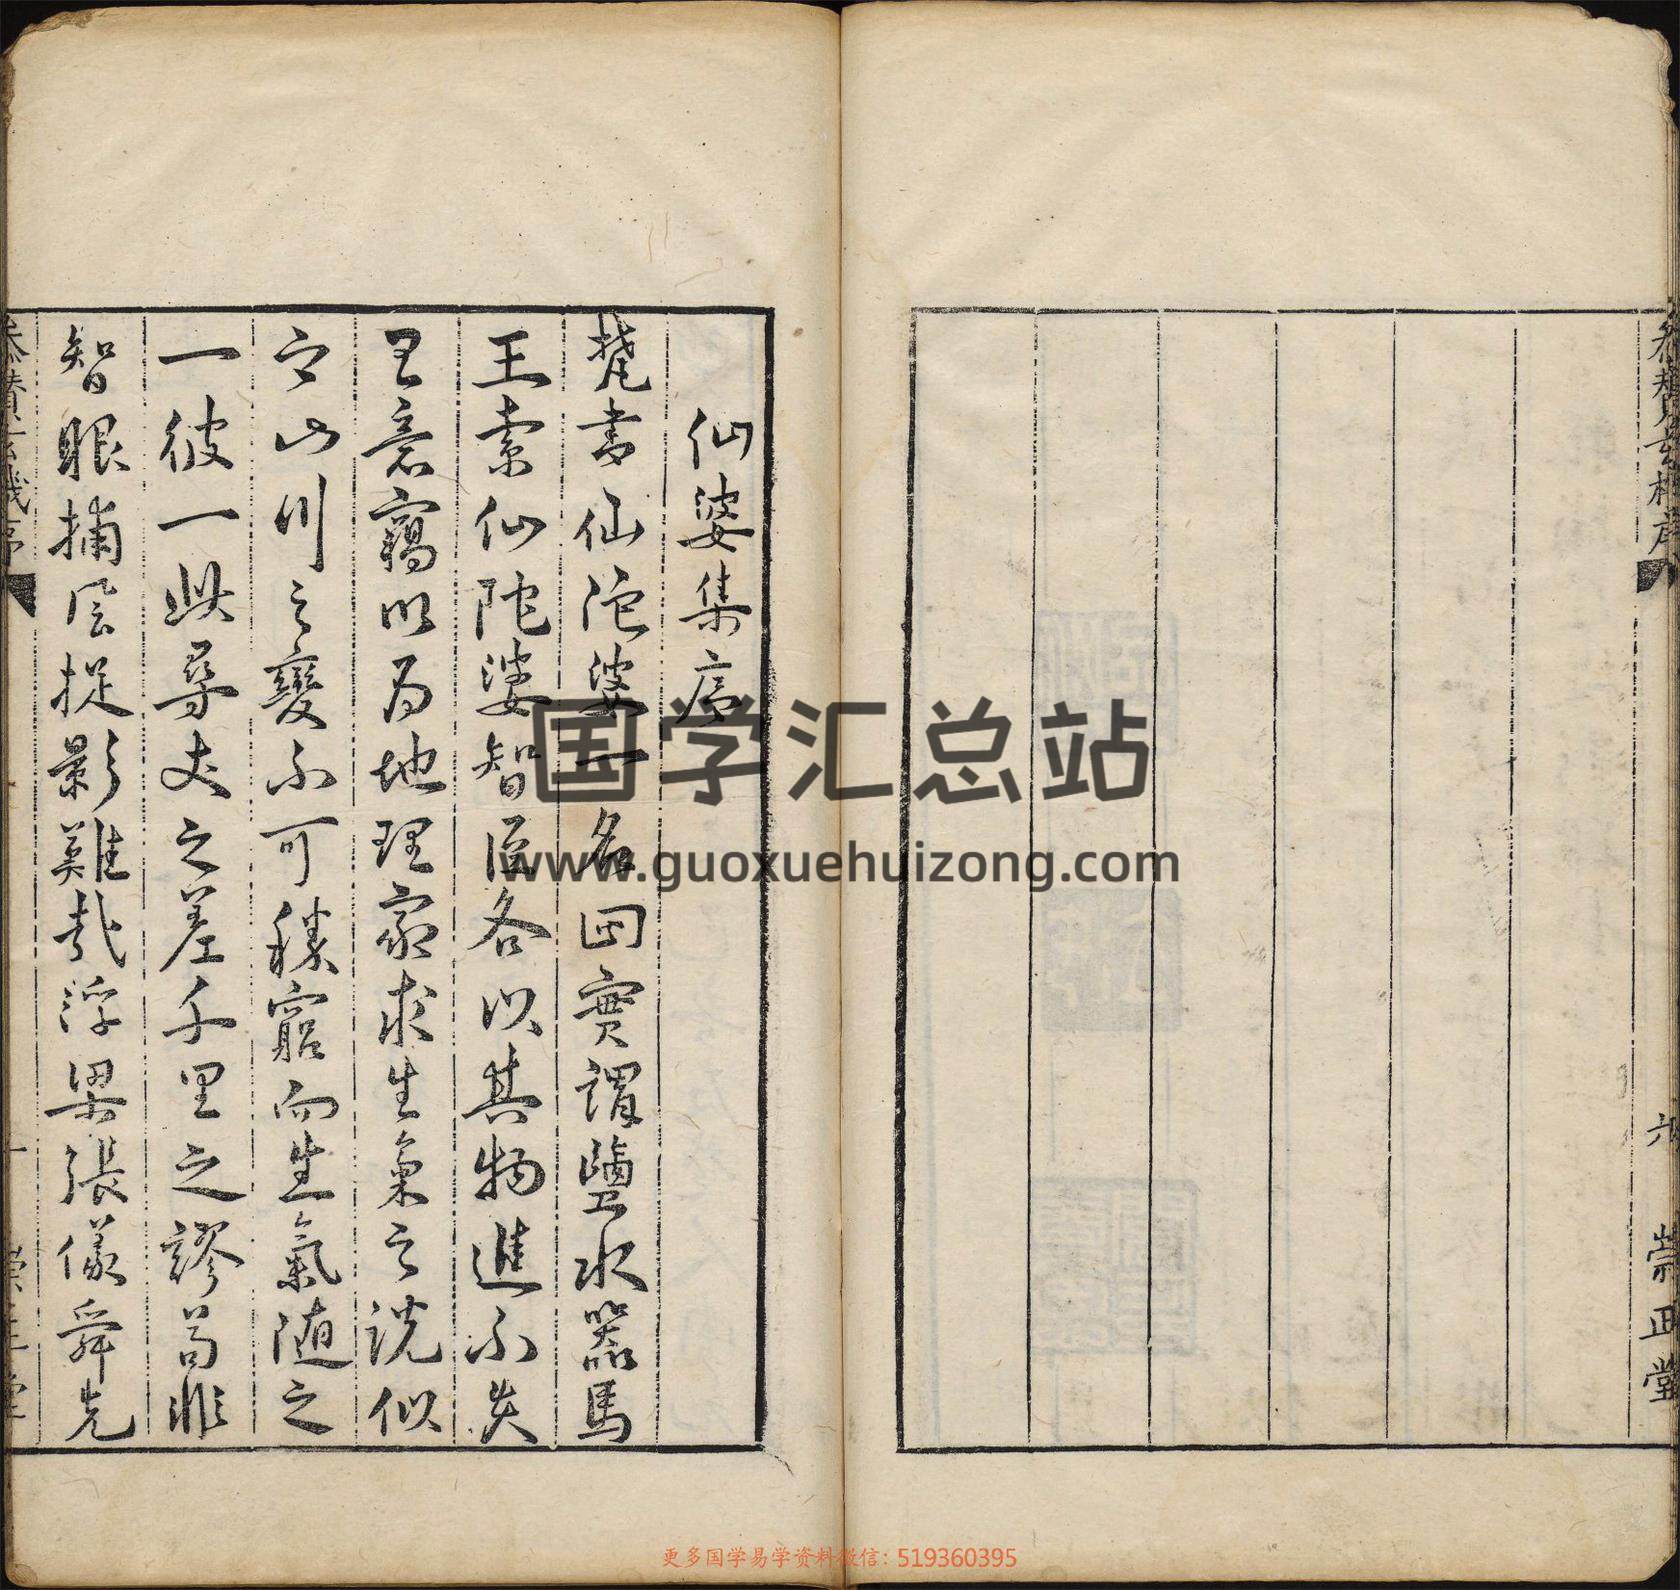 參贊玄機序
六
崇正堂
仙婆集序
梵書仙陀婆一名四實謂鹽水器馬
王索仙陀婆智臣各以其物進不失
王意竊以為地理家求生氣之說似
之山川之變不可勝窮而生氣隨之
一彼一此尋丈之差千里之謬苟非
智眼捕風捉影難哉浮梁張儀舜先
国学汇总站
www.guoxuehuizong.com
更多国学易学资料微信：519360395